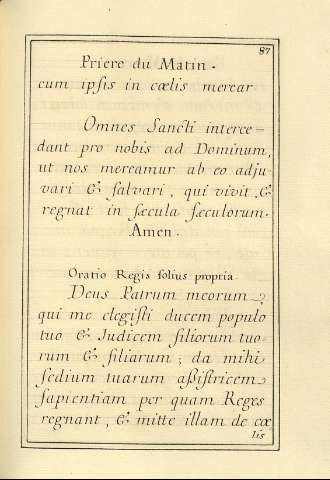 87
Priere du Matin.
cum ipſis in cœlis merear
Omnes Sancti interce-
dant pro nobis ad Dominum,
ut nos mereamur ab eo adju-
vari & ſalvari, qui vivit, &
regnat in ſæcula ſæculorum.
Amen.
Oratio Regis ſolius propria.
Deus Patrum meorum,
qui me elegiſti ducem populo
tuo & Judicem filiorum tuo-
rum & filiarum; da mihi
ſedium tuarum aßiſtricem
ſapientiam per quam Reges
regnant, & mitte illam de cœ
lis